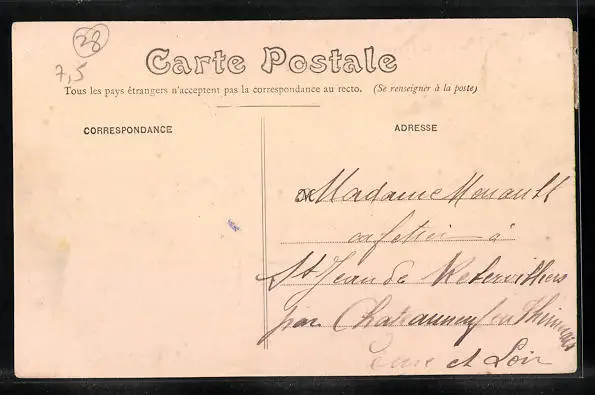 28
7,5
Carte Postale
Tous les pays étrangers n'acceptent pas la correspondance au recto. (Se renseigner à la poste)
CORRESPONDANCE
ADRESSE
Madame Menault
cafetier à
St Jean de Rebervilliers
par Chateauneuf en Thimerais
Eure et Loir